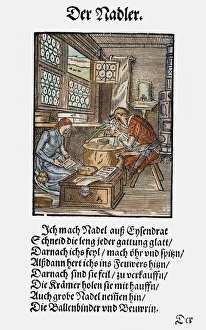 Der Nadler.
Ich mach Nadel auß Eysendrat
Schneid die leng jeder gattung glatt/
Darnach ichs feyl/ mach öhr und spitzn/
Alßdann hert ichs ins Feuwers hitzn/
Darnach sind sie feil/ zu verkauffn/
Die Krämer holen sie mit hauffn/
Auch grobe Nadel nemen hin/
Die Ballenbinder und Beuwrin.
Der